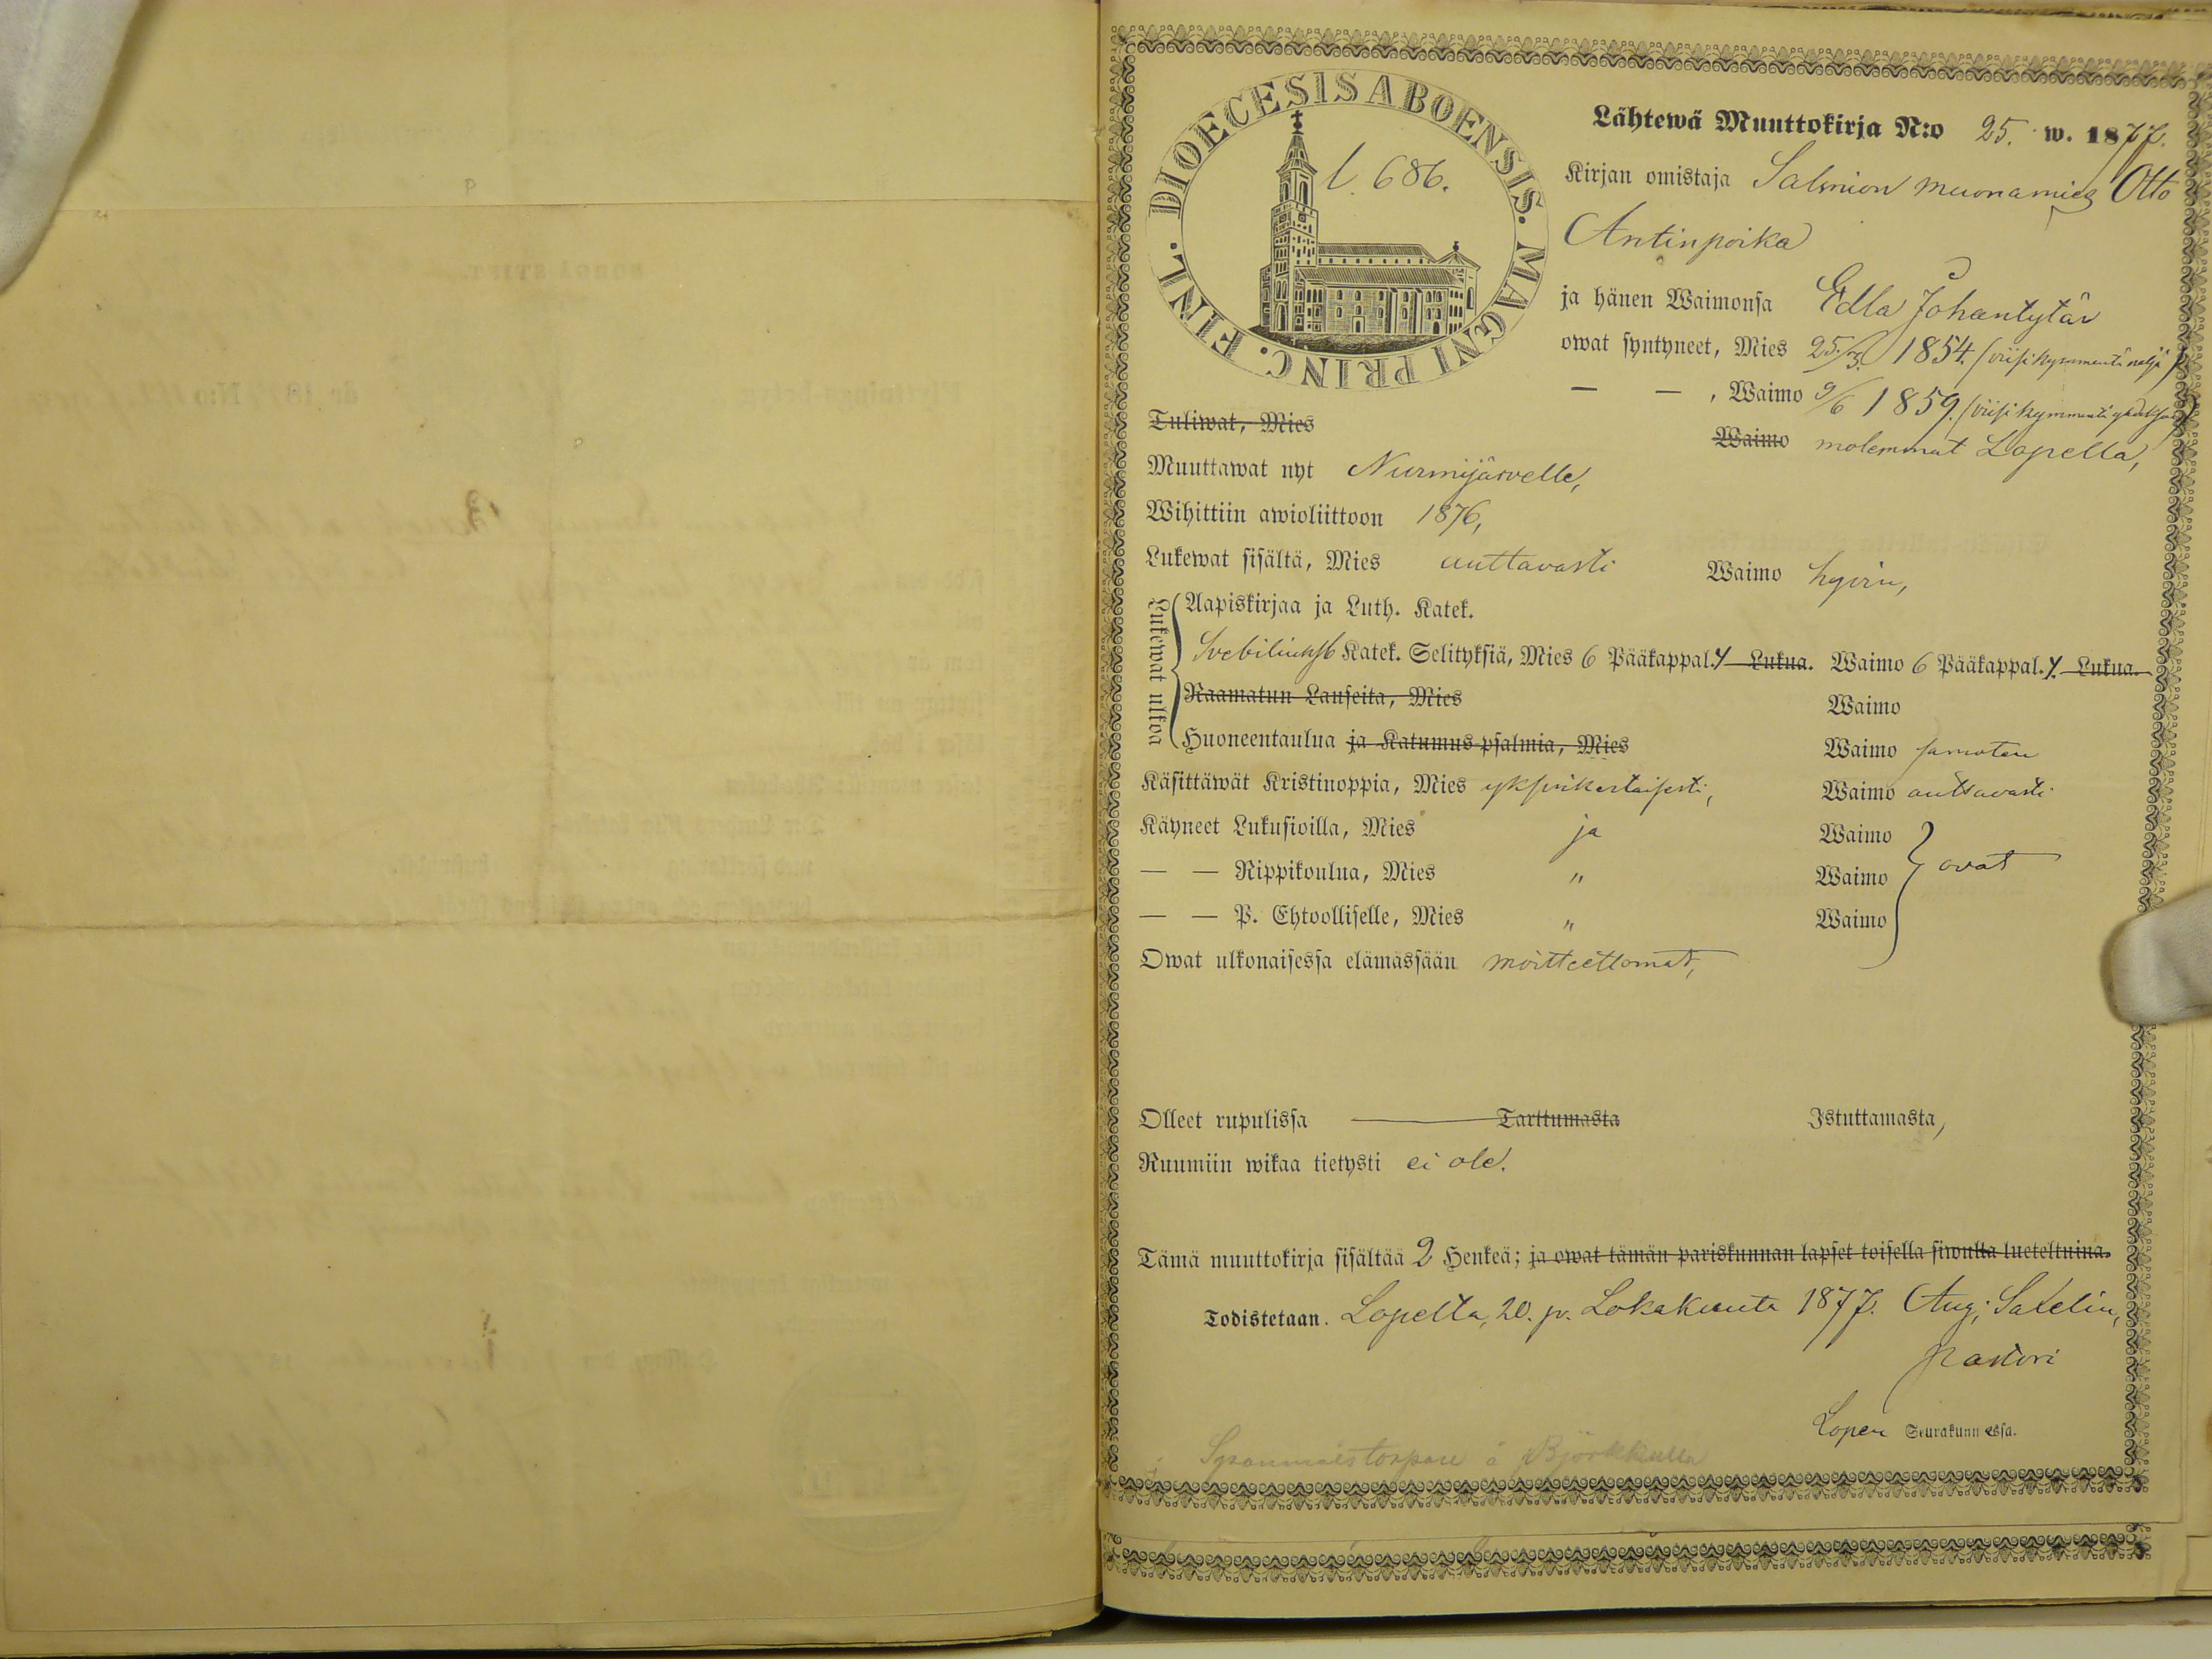 DIOECESIS ABOENSIS. MAGNI PRINC. FINL.
l. 686.
Lähtewä Muuttokirja N:o 25. w. 1877.
Kirjan omistaja Salmion muonamies Otto
Antinpoika
ja hänen Waimonsa Edla Johantytär
owat syntyneet, Mies 25/3. 1854. (viisikymmentä neljä)
— — , Waimo 9/6 1859. (viisikymmentä yhdeksän)
Tuliwat, Mies Waimo molemmat Lopella,
Muuttawat nyt Nurmijärvelle,
Wihittiin awioliittoon 1876,
Lukewat sisältä, Mies auttavasti Waimo hyvin,
Lukewat ulkoa
Aapiskirjaa ja Luth. Katek.
Svebiliuksb Katek. Selityksiä, Mies 6 Pääkappal. Lukua. Waimo 6 Pääkappal. Lukua.
Raamatun Lauseita, Mies Waimo
Huoneentaulua ja Katumus-psalmia, Mies Waimo samoten
Käsittäwät Kristinoppia, Mies yksinkertaisesti, Waimo auttavasti
Käyneet Lukusioilla, Mies ja Waimo
— — Rippikoulua, Mies " Waimo ovat
— — P. Ehtoolliselle, Mies " Waimo
Owat ulkonaisessa elämässään moitteettomat,
Olleet rupulissa Tarttumasta Istuttamasta,
Ruumiin wikaa tietysti ei ole.
Tämä muuttokirja sisältää 2 Henkeä; ja owat tämän pariskunnan lapset toisella siwulla lueteltuina.
Todistetaan. Lopella, 20. p. Lokakuuta 1877. Aug. Salelin,
pastori
Lopen Seurakunnassa.
torpare å Björkkulla